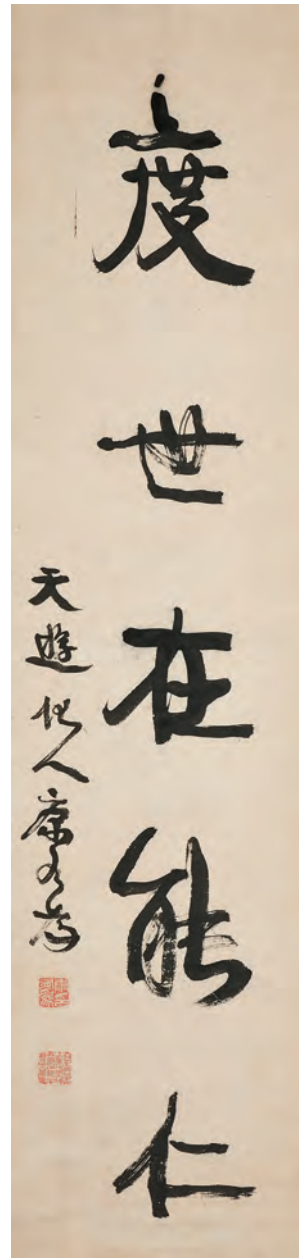 度世在能仁
天遊化人康有為